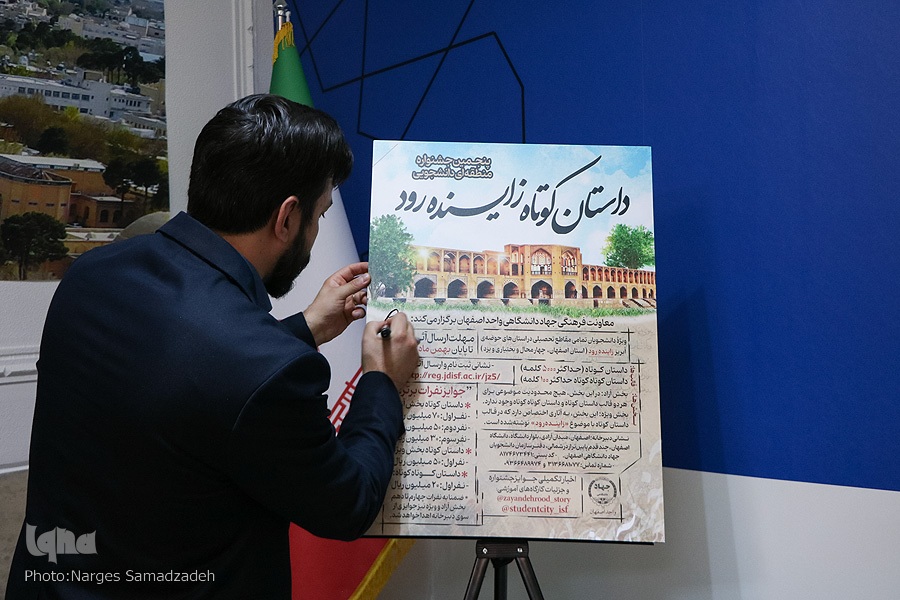 پنجمین جشنواره
منطقه‌ای دانشجویی
داستان کوتاه زاینده رود
معاونت فرهنگی جهاددانشگاهی واحد اصفهان برگزار می‌کند:
ویژهٔ دانشجویان تمامی مقاطع تحصیلی در استان‌های حوضه‌ی
آبریز زاینده رود (استان اصفهان، چهارمحال و بختیاری و یزد)
داستان کوتاه (حداکثر ۵۰۰۰ کلمه)
داستان کوتاه کوتاه حداکثر ۱۰۰ کلمه)
بخش آزاد: در این بخش، هیچ محدودیت موضوعی برای
هر دو قالب داستان کوتاه و داستان کوتاه کوتاه وجود ندارد.
بخش ویژه: این بخش، به آثاری اختصاص دارد که در قالب
داستان کوتاه با موضوع «زاینده‌رود» نوشته شده است.
نشانی دبیرخانه: اصفهان، میدان آزادی، بلوار دانشگاه، دانشگاه
اصفهان، جهاددانشگاهی اصفهان، دفتر سازمان دانشجویان
کد پستی: ۸۱۷۴۶۷۳۴۴۱
شماره تماس:
اخبار تکمیلی، جوایز جشنواره
و جزئیات کارگاه‌های آموزشی:
@zayandehrood_story
@studentcity_isf
جهاد
واحد اصفهان
مهلت ارسال
تا پایان بهمن
- نشانی ثبت نام و ارسال
http://reg.jdisf.ac.ir/jz5/
جوایز نفرات برتر
* داستان کوتاه بخش
- نفر اول: ۷۰ میلیون
- نفر دوم: ۵۰ میلیون
- نفر سوم: ۳۰ میلیون
* داستان کوتاه بخش ویژه
- نفر اول: ۵۰ میلیون ریال
* داستان کوتاه کوتاه:
- نفر اول: ۲۰ میلیون ریال
* ضمنا به نفرات چهارم تا دهم
بخش آزاد و ویژه نیز جوایزی از
سوی دبیرخانه اهدا خواهد شد.
iqna
Photo:Narges Samadzadeh